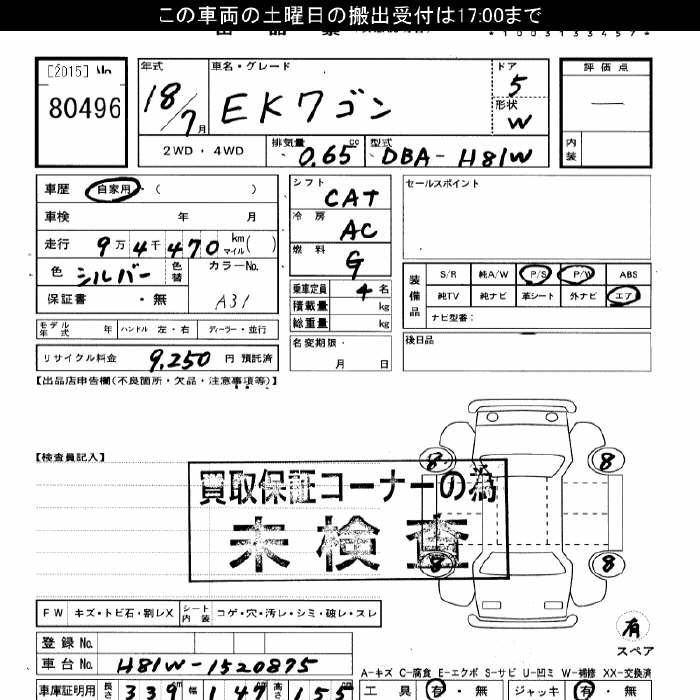 この車両の土曜日の搬出受付は17:00まで
[2015] No
80496
年式 18/7月
車名・グレード EKワゴン
ドア 5
形状 W
評価点
内装
2WD・4WD
排気量 0.65 cc
型式 DBA-H81W
車歴 自家用 ( )
車検 年 月
走行 9万4千470 km マイル( )
色 シルバー 色替
カラーNo. A31
保証書 ・無
モデル年式 年 ハンドル 左・右 ディーラー・並行
リサイクル料金 9,250 円 預託済
シフト CAT
冷房 AC
燃料 G
乗車定員 4 名
積載量 kg
総重量 kg
名変期限・
月 日
セールスポイント
装備品
S/R 純A/W P/S P/W ABS
純TV 純ナビ 革シート 外ナビ エア
ナビ型番:
後日品
【出品店申告欄(不良箇所・欠品・注意事項等)】
【検査員記入】
買取保証コーナーの為
未検査
8 8
8 8
有
スペア
FW キズ・トビ石・割レX シート内装 コゲ・穴・汚レ・シミ・破レ・スレ
登録No.
車台No. H81W-1520875
A-キズ C-腐食 E-エクボ S-サビ U-凹ミ W-補修 XX-交換済
車庫証明用 長さ 339 幅 147 高さ 155
工具 有・無 ジャッキ 有・無